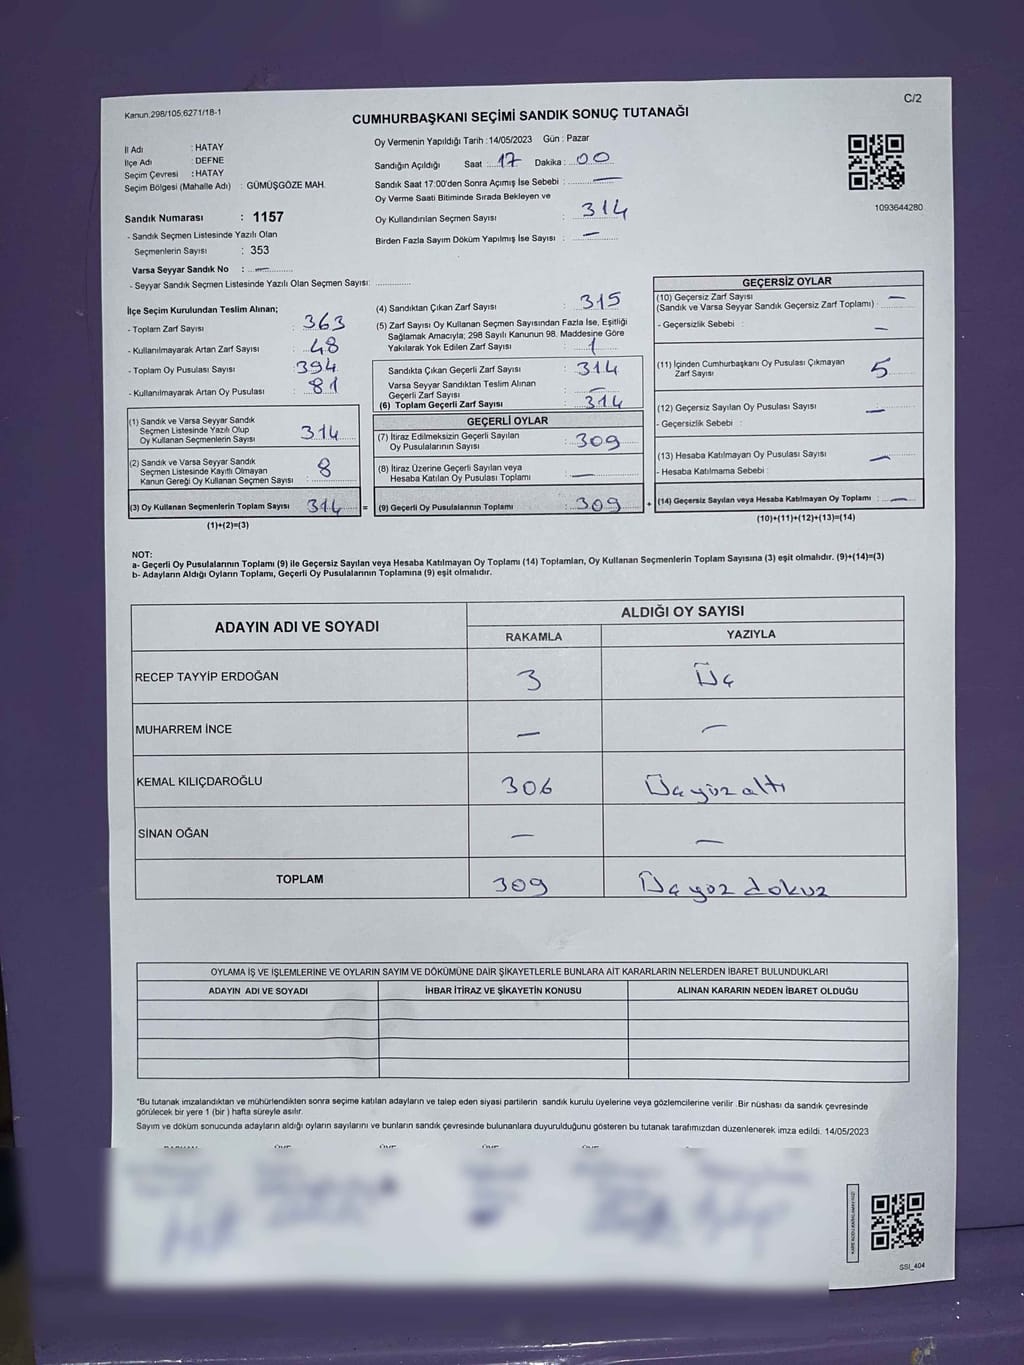 Kanun.298/105;6271/18-1
C/2
CUMHURBAŞKANI SEÇİMİ SANDIK SONUÇ TUTANAĞI
İl Adı : HATAY
İlçe Adı : DEFNE
Seçim Çevresi : HATAY
Seçim Bölgesi (Mahalle Adı) : GÜMÜŞGÖZE MAH.
Sandık Numarası : 1157
- Sandık Seçmen Listesinde Yazılı Olan
Seçmenlerin Sayısı : 353
Varsa Seyyar Sandık No : —
- Seyyar Sandık Seçmen Listesinde Yazılı Olan Seçmen Sayısı:
Oy Vermenin Yapıldığı Tarih :14/05/2023 Gün : Pazar
Sandığın Açıldığı Saat : 17 Dakika : 00
Sandık Saat 17:00'den Sonra Açımış İse Sebebi : —
Oy Verme Saati Bitiminde Sırada Bekleyen ve
Oy Kullandırılan Seçmen Sayısı : 314
Birden Fazla Sayım Döküm Yapılmış İse Sayısı : —
1093644280
İlçe Seçim Kurulundan Teslim Alınan;
- Toplam Zarf Sayısı : 363
- Kullanılmayarak Artan Zarf Sayısı : 48
- Toplam Oy Pusulası Sayısı : 394
- Kullanılmayarak Artan Oy Pusulası : 81
(1) Sandık ve Varsa Seyyar Sandık
Seçmen Listesinde Yazılı Olup
Oy Kullanan Seçmenlerin Sayısı 314
(2) Sandık ve Varsa Seyyar Sandık
Seçmen Listesinde Kayıtlı Olmayan
Kanun Gereği Oy Kullanan Seçmen Sayısı : 8
(3) Oy Kullanan Seçmenlerin Toplam Sayısı 314 =
(1)+(2)=(3)
(4) Sandıktan Çıkan Zarf Sayısı : 315
(5) Zarf Sayısı Oy Kullanan Seçmen Sayısından Fazla İse, Eşitliği
Sağlamak Amacıyla; 298 Sayılı Kanunun 98. Maddesine Göre
Yakılarak Yok Edilen Zarf Sayısı : 1
Sandıkta Çıkan Geçerli Zarf Sayısı : 314
Varsa Seyyar Sandıktan Teslim Alınan
Geçerli Zarf Sayısı : —
(6) Toplam Geçerli Zarf Sayısı : 314
GEÇERLİ OYLAR
(7) İtiraz Edilmeksizin Geçerli Sayılan
Oy Pusulalarının Sayısı : 309
(8) İtiraz Üzerine Geçerli Sayılan veya
Hesaba Katılan Oy Pusulası Toplamı : —
(9) Geçerli Oy Pusulalarının Toplamı : 309 +
GEÇERSİZ OYLAR
(10) Geçersiz Zarf Sayısı
(Sandık ve Varsa Seyyar Sandık Geçersiz Zarf Toplamı) : —
- Geçersizlik Sebebi : —
(11) İçinden Cumhurbaşkanı Oy Pusulası Çıkmayan
Zarf Sayısı : 5
(12) Geçersiz Sayılan Oy Pusulası Sayısı : —
- Geçersizlik Sebebi :
(13) Hesaba Katılmayan Oy Pusulası Sayısı : —
- Hesaba Katılmama Sebebi :
(14) Geçersiz Sayılan veya Hesaba Katılmayan Oy Toplamı : —
(10)+(11)+(12)+(13)=(14)
NOT:
a- Geçerli Oy Pusulalarının Toplamı (9) ile Geçersiz Sayılan veya Hesaba Katılmayan Oy Toplamı (14) Toplamları, Oy Kullanan Seçmenlerin Toplam Sayısına (3) eşit olmalıdır. (9)+(14)=(3)
b- Adayların Aldığı Oyların Toplamı, Geçerli Oy Pusulalarının Toplamına (9) eşit olmalıdır.
ADAYIN ADI VE SOYADI
ALDIĞI OY SAYISI
RAKAMLA YAZIYLA
RECEP TAYYİP ERDOĞAN 3 Üç
MUHARREM İNCE — —
KEMAL KILIÇDAROĞLU 306 Üçyüzaltı
SİNAN OĞAN — —
TOPLAM 309 Üçyüz dokuz
OYLAMA İŞ VE İŞLEMLERİNE VE OYLARIN SAYIM VE DÖKÜMÜNE DAİR ŞİKAYETLERLE BUNLARA AİT KARARLARIN NELERDEN İBARET BULUNDUKLARI
ADAYIN ADI VE SOYADI İHBAR İTİRAZ VE ŞİKAYETİN KONUSU ALINAN KARARIN NEDEN İBARET OLDUĞU
"Bu tutanak imzalandıktan ve mühürlendikten sonra seçime katılan adayların ve talep eden siyasi partilerin sandık kurulu üyelerine veya gözlemcilerine verilir .Bir nüshası da sandık çevresinde
görülecek bir yere 1 (bir ) hafta süreyle asılır.
Sayım ve döküm sonucunda adayların aldığı oyların sayılarını ve bunların sandık çevresinde bulunanlara duyurulduğunu gösteren bu tutanak tarafımızdan düzenlenerek imza edildi. 14/05/2023
SSI_404